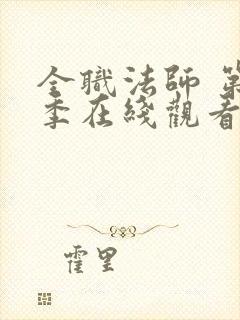 全職法師 第
季在綫觀看
霍里